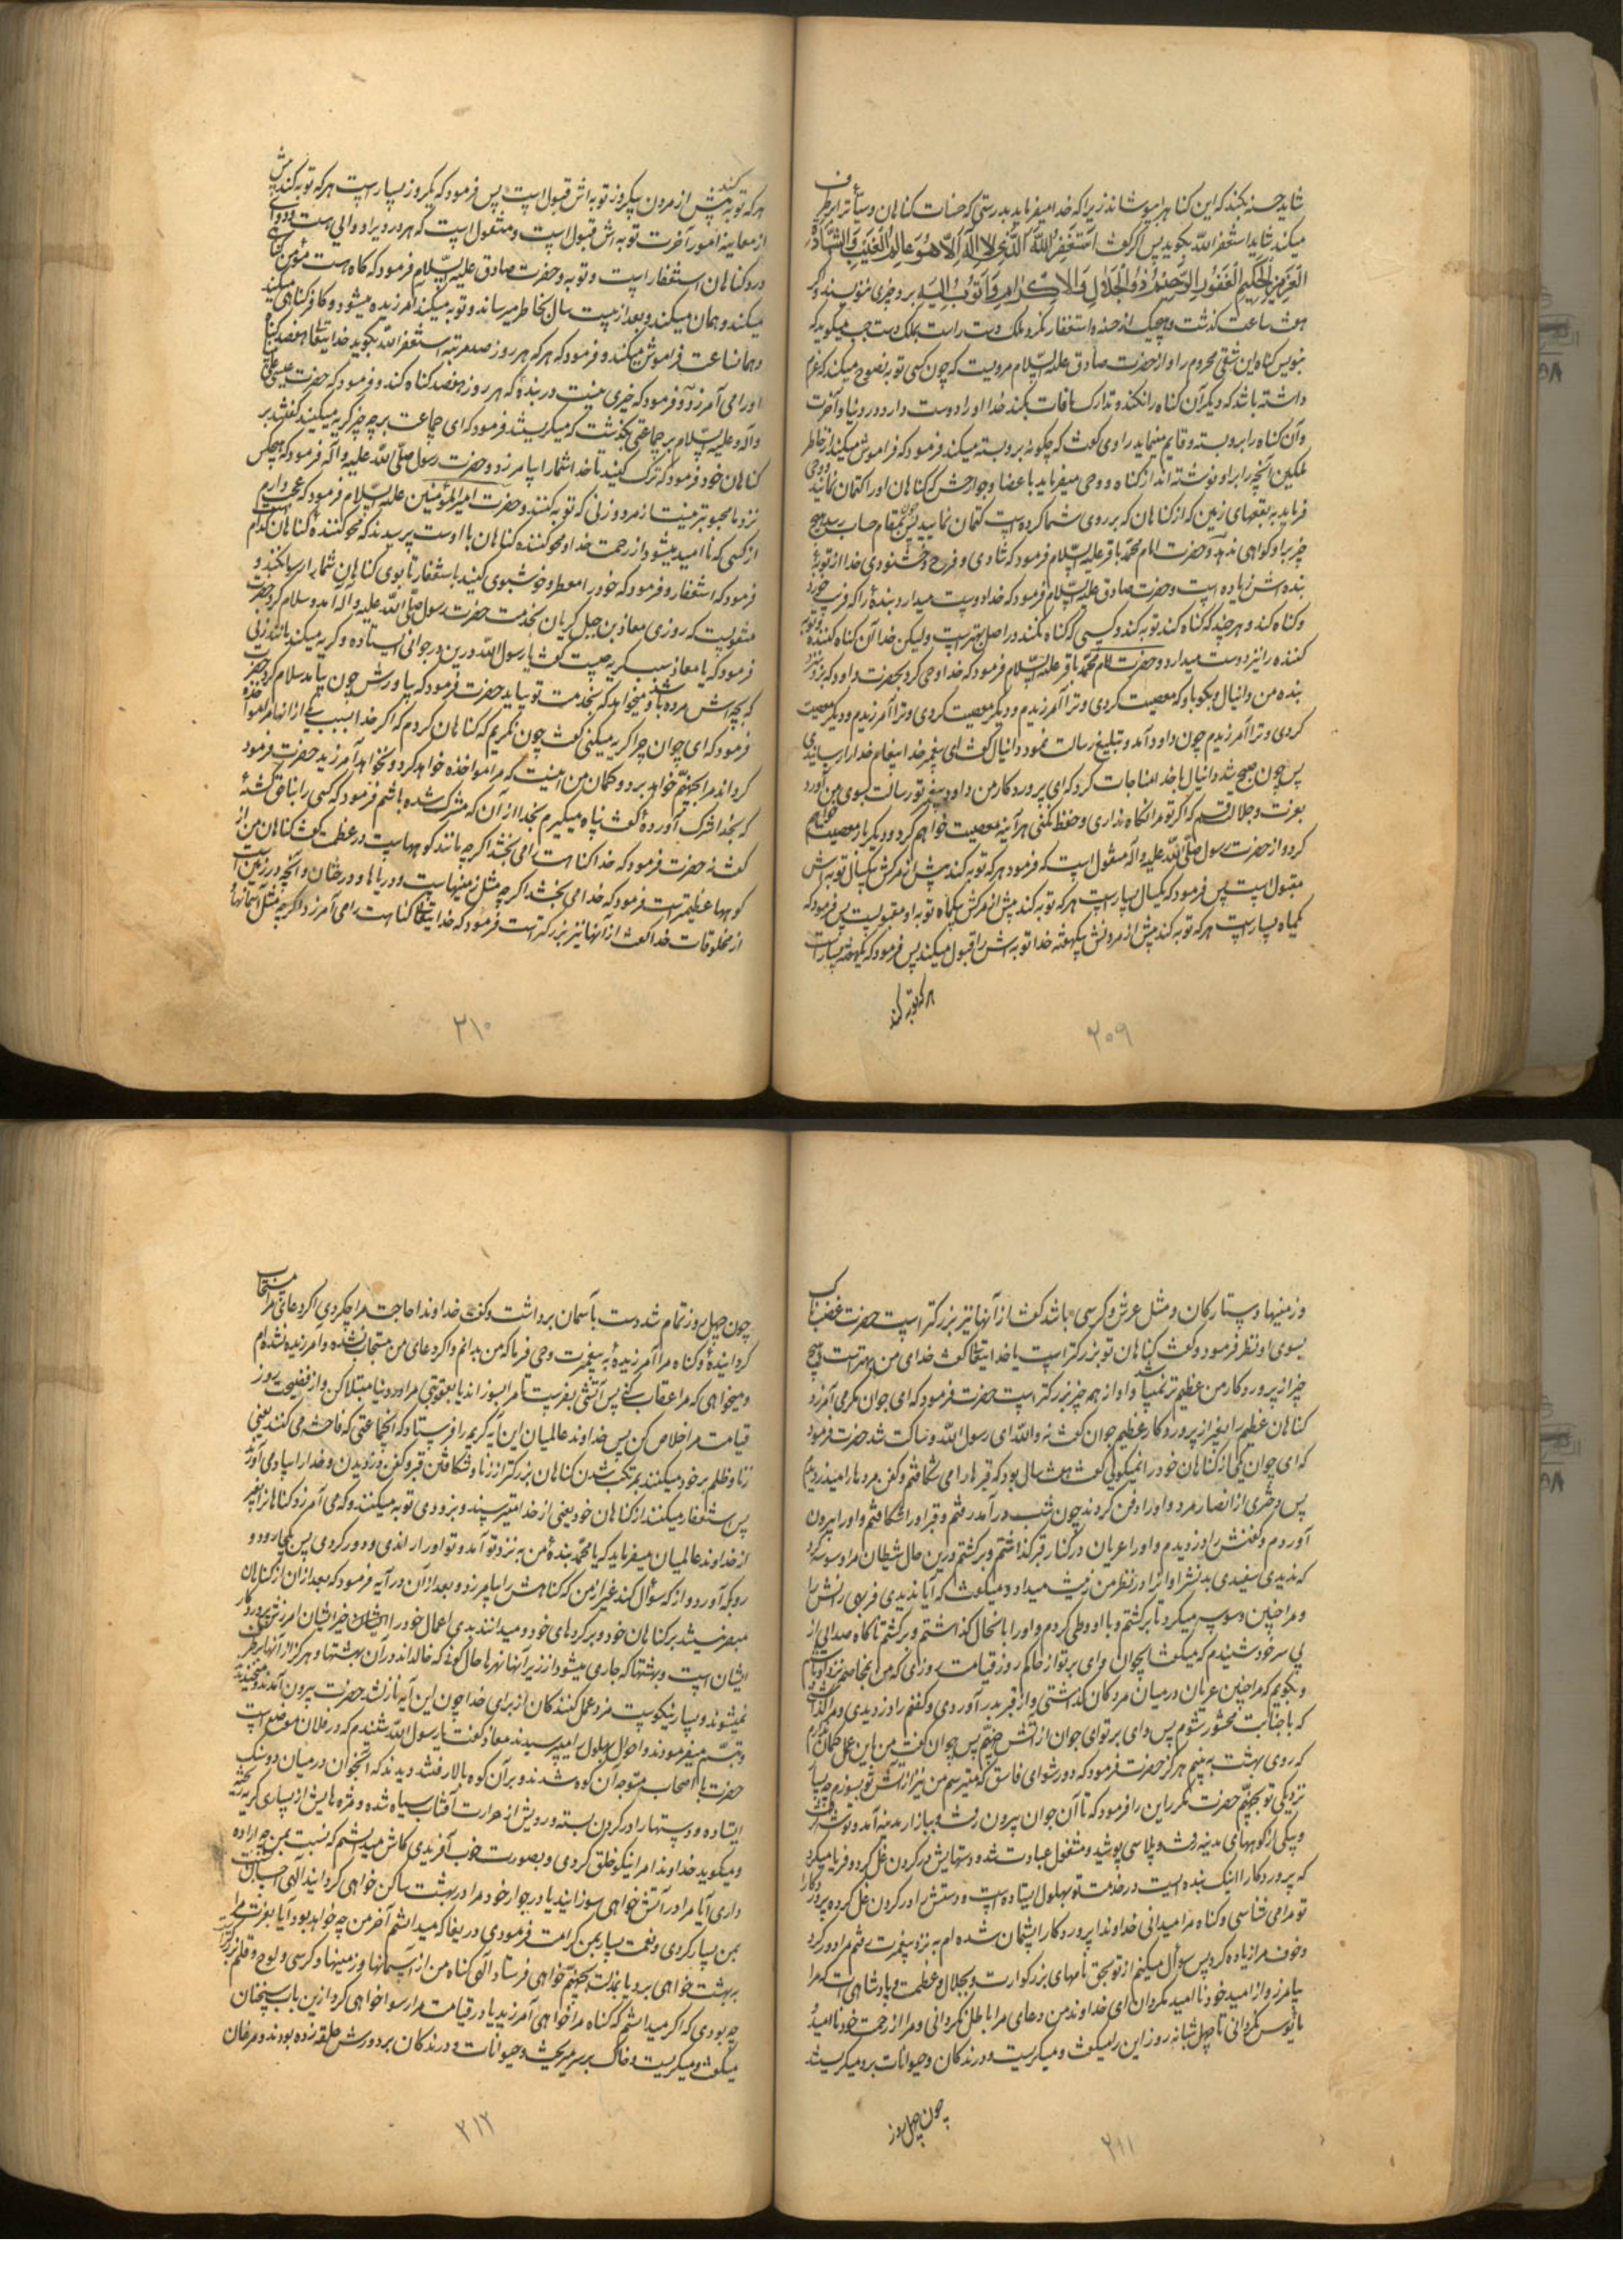 شاید حسنه بکند که این کناهرا بپوشاند زیرا که خدا میفرماید بدرستی که حسنات کناهان و سیأترا برطرف
میکند شاید استغفر اللّه بکوید پس اکر کفت استغفر اللّه الذی لا اله الا هو عالم الغیب و الشهادة
العزیز الحکیم الغفور الرحیم ذو الجلال و الاکرام و اتوب الیه برو چیزی ننویسند و اکر
هفت ساعت کذشت و هیچیک از حسنه و استغفار نکرد ملک دست راست بملک دست چپ میکوید که
بنویس کناه این شقی محروم را و از حضرت صادق علیه السّلام مرویست که چون کسی توبه نصوح میکند که عزم
داشته باشد که دیکر آن کناه را نکند و تدارک مافات بکند خدا او را دوست دارد در دنیا و آخرت
و آن کناه را برو بسته و قایم مینماید راوی کفت که چکونه برو بسته میکند فرمود که فراموش میکند از خاطر
ملکین آنچه را بر او نوشته اند از کناه و وحی میفرماید باعضا و جوارحش که کناهان او را کتمان نمائید و وحی
فرماید به بقعهای زمین که از کناهان که بر روی شما کرده است کتمان نمایید پس چون بمقام حساب رسد هیچ
چیز بر او کواهی ندهد و حضرت امام محمّد باقر علیه السّلام فرمود که شادی و فرح و خشنودی خدا از توبهٔ
بنده اش زیاده است و حضرت صادق علیه السّلام فرمود که خدا دوست میدارد بندهٔ را که فریب خورد
و کناه کند و هر چند که کناه کند توبه کند و کسی که کناه نکند در اصل بهتر است ولیکن خدا آن کناه کننده و توبه
کننده را نیز دوست میدارد و حضرت امام محمّد باقر علیه السّلام فرمود که خدا وحی کرد بحضرت داود که برو نزد
بنده من دانیال و بکو باو که معصیت کردی و ترا آمرزیدم و دیکر معصیت کردی و ترا آمرزیدم و دیکر معصیت
کردی و ترا آمرزیدم چون داود آمد و تبلیغ رسالت نمود دانیال کفت ای پیغمبر خدا پیغام خدا را رسانیدی
پس چون صبح شد دانیال با خدا مناجات کرد که ای پروردکار من داود پیغمبر تو رسالت بسوی من آورد
بعزت و جلالت قسم که اکر تو مرا نکاه نداری و حفظ نکنی هر آینه معصیت خواهم کرد و دیکر باز معصیت خواهم
کرد و از حضرت رسول صلّی اللّه علیه و آله منقول است که فرمود هر که توبه کند پیش از مرکش بیکسال توبه اش
مقبول است پس فرمود که یکسال بسیار است هر که توبه کند پیش از مرکش بیکماه توبه او مقبولست پس فرمود که
یکماه بسیار است هر که توبه کند پیش از مردنش بیکهفته خدا توبه اش را قبول میکند پس فرمود که یکهفته بسیار است
هر که توبه کند
۲۰۹
هر که توبه کند پیش از مردن بیکروز توبه اش قبول است پس فرمود که یکروز بسیار است هر که توبه کند پیش
از معاینه امور آخرت توبه اش قبول است و منقول است که هر دردیرا دوایی است و دوای
درد کناهان استغفار است و توبه و حضرت صادق علیه السّلام فرمود که کاه است مؤمن کناهی
میکند و همان میکند و بعد از بیست سال بخاطر میرساند و توبه میکند آمرزیده میشود و کافر کناهی میکند
و همانساعت فراموش میکند و فرمود که هر که هر روز صد مرتبه استغفر اللّه بکوید خدایتعالی هفصد کناه
او را می آمرزد و فرمود که خیری نیست در بندهٔ که هر روز هفصد کناه کند و فرمود که حضرت عیسی علی نبینا
و آله و علیه السّلام بر جماعتی بکذشت که میکریستند فرمود که ای جماعت بر چه چیز کریه میکنید کفتند بر
کناهان خود فرمود که ترک کنید تا خدا شما را بیامرزد و حضرت رسول صلّی اللّه علیه و آله فرمود که هیچکس
نزد ما محبوبتر نیست از مرد و زنی که توبه کنند و حضرت امیر المؤمنین علیه السّلام فرمود که عجب دارم
از کسی که ناامید میشود از رحمت خدا و محو کننده کناهان با اوست پرسیدند که محو کنندهٔ کناهان کدام
فرمود که استغفار و فرمود که خود را معطر و خوشبوی کنید باستغفار تا بوی کناهان شما را رسوا نکند و
منقولست که روزی معاذ بن جبل کریان بخدمت حضرت رسول صلّی اللّه علیه و آله آمد و سلام کرد حضرت
فرمود که یا معاذ سبب کریه چیست کفت یا رسول اللّه درین در جوانی ایستاده و کریه میکند مانند زنی
که بچه اش مرده باشد و میخواهد که بخدمت تو بیاید حضرت فرمود که بیاورش چون بیامد سلام کرد حضرت
فرمود که ای جوان چرا کریه میکنی کفت چون نکریم که کناهان کردم که اکر خدا بسبب بعضی از انها مرا مواخذه
کرداند مرا بجهنّم خواهد برد و کمان من اینست که مرا مواخذه خواهد کرد و نخواهد آمرزید حضرت فرمود
که بخدا شرک آوردهٔ کفت پناه میکیرم بخدا از آن که مشرک شده باشم فرمود که کسی را بناحق کشتهٔ
کفت نه حضرت فرمود که خدا کناهت را می بخشد اکر چه مانند کوهها ست در عظمت کفت کناهان من از
کوهها عظیمتر است فرمود که خدا می بخشد اکر چه مثل زمینهاست و دریاها و درختان و آنچه در زمین است
از مخلوقات خدا کفت از آنها نیز بزرکتر است فرمود که خدایتعالی کناهت را می آمرزد اکر چه مثل آسمانها
۲۱۰
و زمینها و ستارکان و مثل عرش و کرسی باشد کفت از آنها نیز بزرکتر است حضرت غضبناک
بسوی او نظر فرمود و کفت کناهان تو بزرکتر است یا خدایتعالی کفت خدای من بهتر است هیچ
چیز از پروردکار من عظیم تر نمیباشد و او از همه چیز بزرکتر است حضرت فرمود که ای جوان مکر می آمرزد
کناهان عظیم را بغیر از پروردکار عظیم جوان کفت نه واللّه ای رسول اللّه و ساکت شد حضرت فرمود
که ای جوان یکی از کناهان خود را نمیکویی کفت هفت سال بود که قبرها را می شکافتم و کفن مردها را میدزدیدم
پس دختری از انصار مرد و او را دفن کردند چون شب در آمد رفتم و قبر او را شکافتم و او را بیرون
آوردم و کفنش را دزدیدم و او را عریان در کنار قبر کذاشتم و برکشتم درین حال شیطان مرا وسوسه کرد
که ندیدی سفیدی بدنش را و او را در نظر من زینت میداد و میکفت که آیا ندیدی فربهی رانش را
و مرا چنین وسوسه میکرد تا برکشتم و با او وطی کردم و او را بانحال کذاشتم و برکشتم ناکاه صدائی از
پی سر خود شنیدم که میکفت ای جوان وای بر تو از حاکم روز قیامت روزی که من بمخاصمه نزد او بایستم
و بکویم که مرا چنین عریان در میان مردکان کذاشتی و از قبر بدر آوردی و کفنم را دزدیدی و مرا کذاشتی
که با جنابت محشور شوم پس وای بر تو ای جوان از آتش جهنّم پس جوان کفت من باین عمل کمان ندارم
که روی بهشت به بینم هرکز حضرت فرمود که دور شو ای فاسق که میترسم من نیز از آتش تو بسوزم چه بسیار
نزدیکی تو بجهنّم حضرت مکرر این را فرمود که تا آن جوان بیرون رفت و ببازار مدینه آمد و توشه کرفت
و بیکی از کوههای مدینه رفت و پلاسی پوشید و مشغول عبادت شد و دستهایش در کردن غل کرد و فریاد میکرد
که پروردکارا اینک بنده ایست در خدمت تو بهلول ایستاده است و دستش را در کردن غل کرده پروردکارا
تو مرا می شناسی و کناه مرا میدانی خداوندا پروردکارا پشیمان شده ام به نزد پیغمبرت رفتم مرا دور کرد
و خوف مرا زیاده کرد پس سؤال میکنم از تو بحق نامهای بزرکوارت و بجلال و عظمت و پادشاهی ات که مرا
بیامرز و از امید خود ناامید نکردان ای خداوند من دعای مرا باطل نکردانی و مرا از رحمت خود ناامید
مأیوس نکردانی تا چهل شبانه روز این را میکفت و میکریست و درندکان و حیوانات برو میکریستند
چون چهل روز
۲۱۱
چون چهل روز تمام شد دست بآسمان برداشت و کفت خداوندا حاجت مرا چکردی اکر دعای مرا مستجاب
کردانیدهٔ و کناه مرا آمرزیدهٔ به پیغمبرت وحی فرما که من بدانم و اکر دعای من مستجاب نشده و آمرزیده نشده ام
و میخواهی که مرا عقاب کنی پس آتشی بفرست تا مرا بسوزاند یا بعقوبتی مرا در دنیا مبتلا کن و از فضیحت روز
قیامت مرا خلاص کن پس خداوند عالمیان این آیه کریم را فرستاد که انجماعتی که فاحشه می کنند یعنی
زنا و ظلم بر خود میکنند بمرتکب شدن کناهان بزرکتر از زنا و شکافتن قبر و کفن دزدیدن و خدا را بیاد می آورند
پس استغفار میکنند از کناهان خود یعنی از خدا میترسند و بزودی توبه میکنند و که می آمرزد کناهانرا بغیر
از خداوند عالمیان میفرماید که یا محمّد بندهٔ من به نزد تو آمد و تو او را راندی و دور کردی پس بکجا رود و
رو بکه آورد و از که سؤال کند غیر از من که کناهش را بیامرزد و بعد از آن در آیه فرمود که بعد از ان از کناهان
مبصر نیستند بر کناهان خود و بر کردهای خود و میدانند بدی اعمال خود را ایشان جزای ایشان آمرزش پروردکار
ایشان است و بهشتها که جاری میشود از زیر آنها نهرها حال کونی که خالداند در آن بهشتها و هرکز از آنها بدر
نمیشوند و بسیار نیکوست مزد عمل کنندکان از برای خدا چون این آیه نازل شد حضرت بیرون آمدند و میخندیدند
و تبسّم میفرمودند و احوال بهلول را میپرسیدند معاذ کفت یا رسول اللّه شنیدم که در فلان موضع است
حضرت با اصحاب متوجه آن کوه شدند و بر آن کوه بالا رفتند دیدند که آنجوان در میان دو سنک
ایستاده و دستها را در کردن بسته و رویش از حرارت آفتاب سیاه شده و مژه هایش از بسیاری کریه ریخته
و میکوید خداوندا مرا نیکو خلق کردی و بصورت خوب آفریدی کاش میدانستم که نسبت بمن چه اراده
داری آیا مرا در آتش خواهی سوزانید یا در جوار خود مرا در بهشت ساکن خواهی کردانید الهی احسان
بمن بسیار کردی و نعمت بسیار بمن کرامت فرمودی دریغا که میدانستم آخر من چه خواهد بود آیا بعزت مرا
ببهشت خواهی برد یا بمذلت بجهنّم خواهی فرستاد الهی کناه من از آسمانها و زمینها و کرسی و لوح و قلم بزرکتر است
چه بودی که اکر میدانستم که کناه مرا خواهی آمرزید یا در قیامت مرا رسوا خواهی کرد از این باب سخنان
میکفت و میکریست و خاک بر سر میریخت و حیوانات و درندکان بر دورش حلقه زده بودند و مرغان
۲۱۲